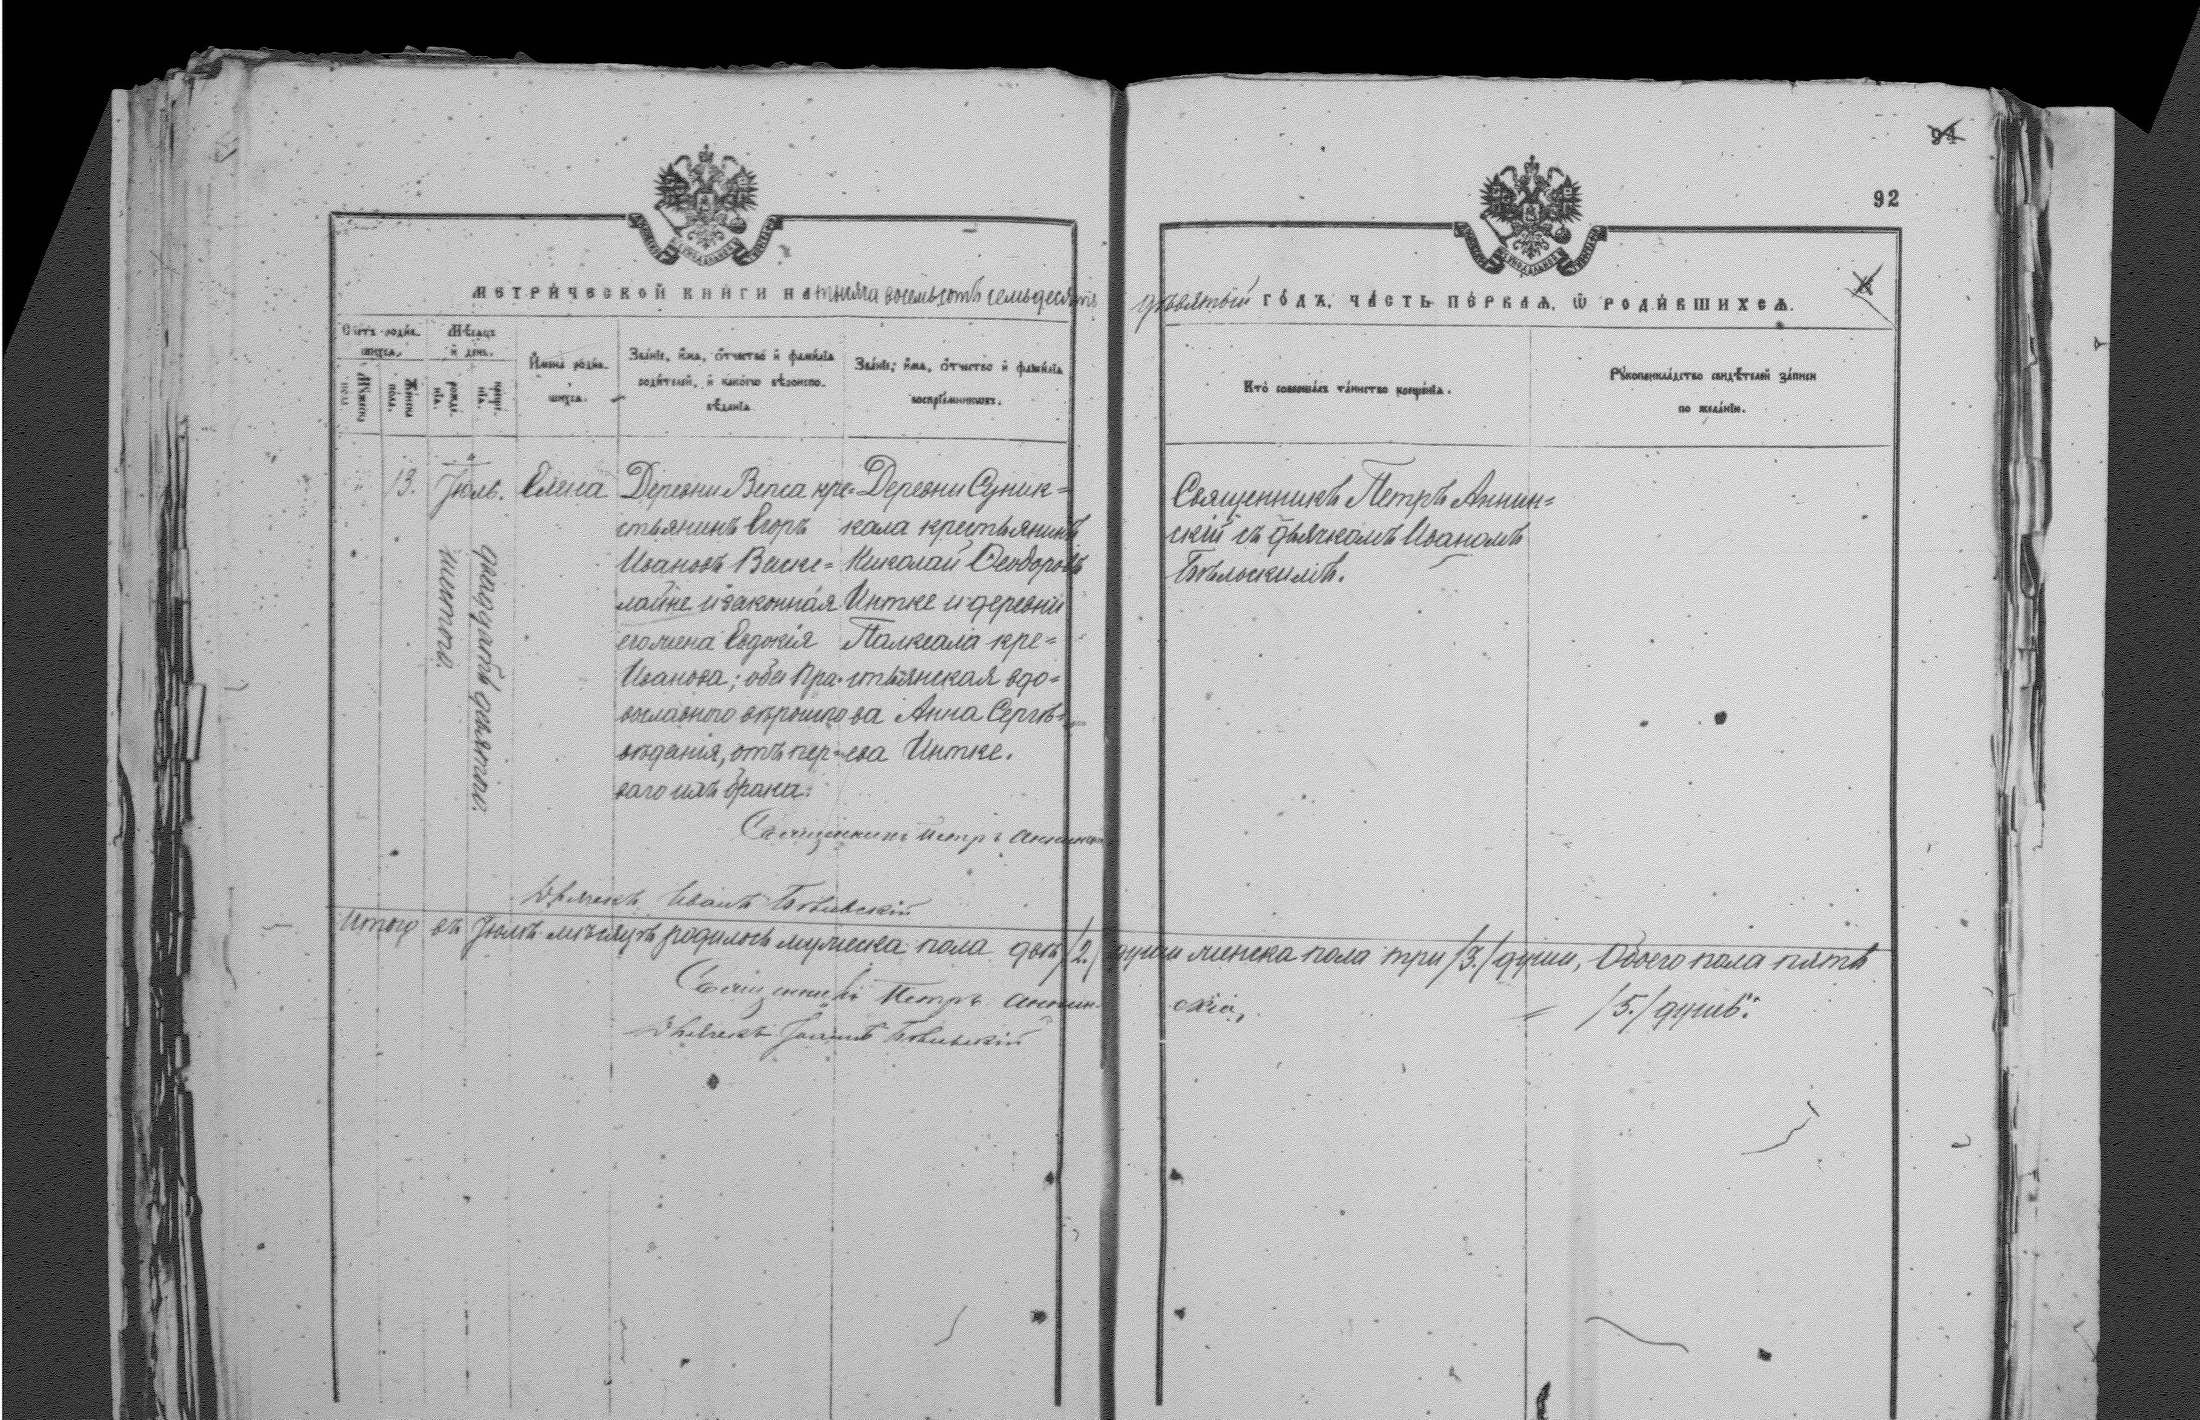 94
92
МЕТРИЧЕСКОЙ КНИГИ НА тысяча восемьсотъ семьдесятъ
девятый ГОДЪ, ЧАСТЬ ПЕРВАЯ, Ѡ РОДИВШИХСЯ.
Счетъ родив-
шихся.
Мужеска
пола
Женска
пола.
Мѣсяцъ
и день.
рожде-
нія.
креще-
нія.
Имена родив-
шихся.
Званіе, имя, отчество и фамилія
родителей, и какого вѣроиспо-
вѣданія
Званіе, имя, отчество и фамилія
воспріемниковъ.
Кто совершалъ таинство крещенія.
Рукоприкладство свидѣтелей записи
по желанію.
13.
Іюль.
шестого.
двадцать девятого.
Елена
Деревни Вепса кре-
стьянинъ Егоръ
Ивановъ Веске-
лайне и законная
его жена Евдокія
Иванова; оба пра-
вославного вѣроиспо
вѣданія, отъ пер-
ваго ихъ брака.
Деревни Суник-
кала крестьянинъ
Николай Ѳеодоровъ
Интке и деревни
Палкеала кре-
стьянская вдо-
ва Анна Сергѣ-
ева Интке.
Священникъ Петръ Аннин-
скій съ дьячкомъ Иваномъ
Бѣльскимъ.
Священникъ Петръ Аннинскій
Дьячекъ Иванъ Бѣльскій
Итого въ Іюлѣ мѣсяцѣ родилось мужеска пола двѣ /2./ души женска пола три /3./ души, Обоего пола пять
/5./ душъ.
Священникъ Петръ Аннин-
скій,
Дьячекъ Іоаннъ Бѣльскій